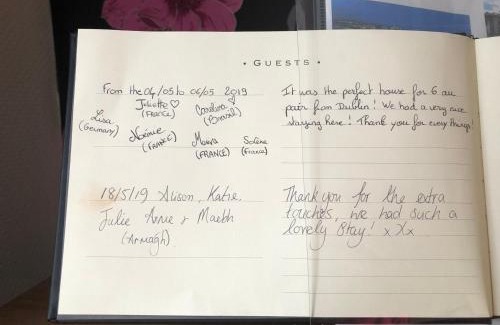 • GUESTS •
From the 04/05 to 06/05 2019
Juliette ♡ (FRANCE)
Carolina ♡ (Brasil)
Lisa (Germany)
Noémie (FRANCE)
Maeva (FRANCE)
Solène (France)
It was the perfect house for 6 au
pair from Dublin! We had a very nice
staying here! Thank you for every things!
18/5/19 Alison, Katie,
Julie Anne + Maebh
(Armagh)
Thank you for the extra
touches, we had such a
lovely stay! xxx